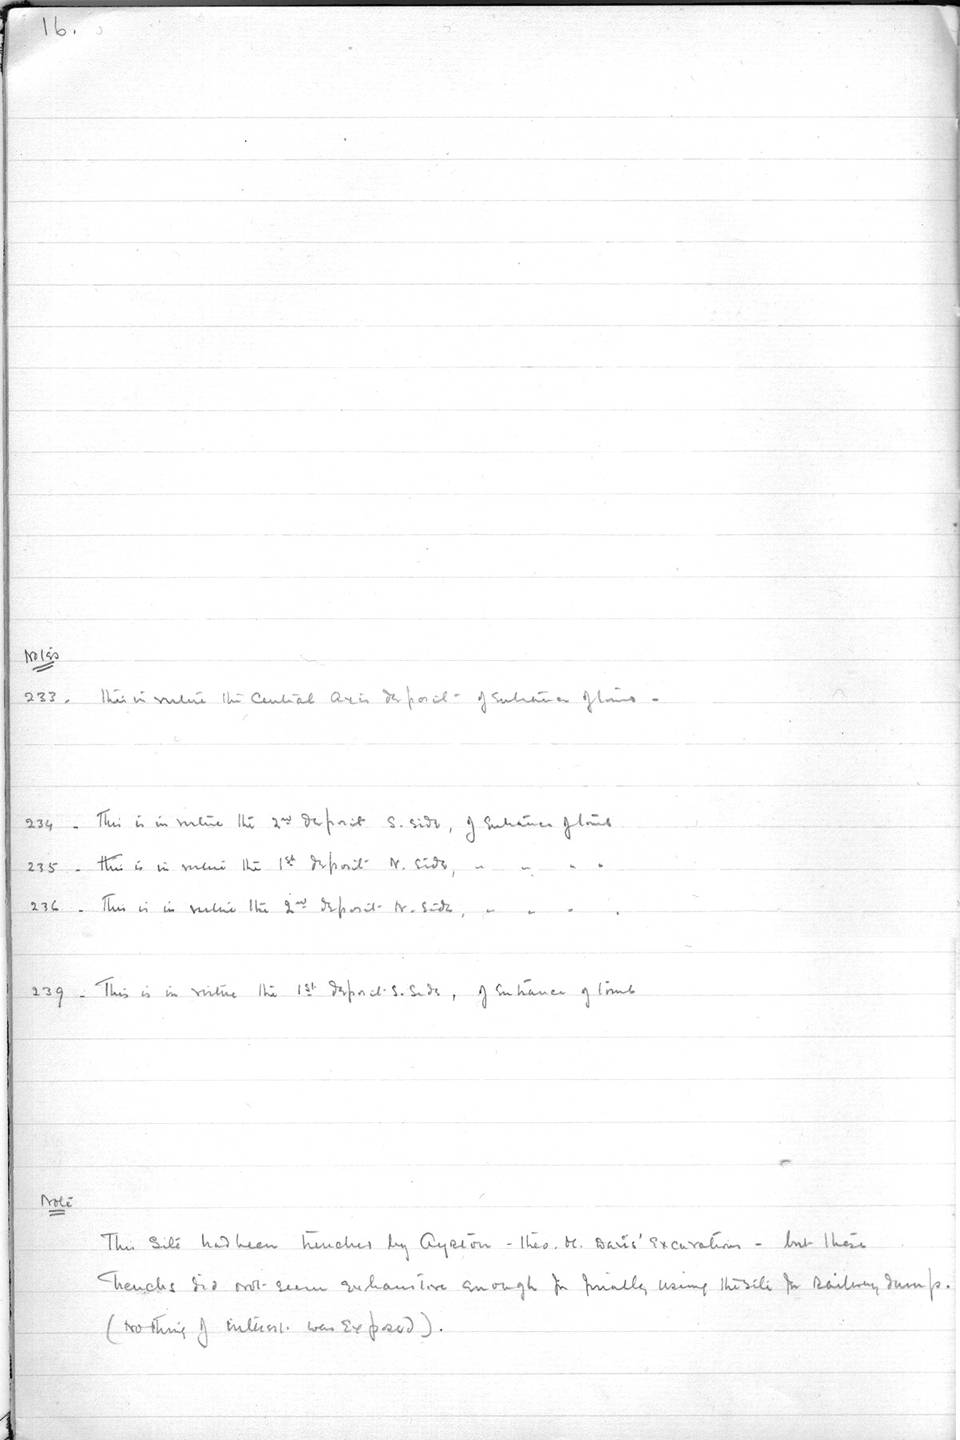 16.
Notes
233. this in virtue the Central Axis deposit - of Entrance of tomb -
234 - This is in virtue the 2nd deposit S. side, of Entrance of tomb
235 - this is in virtue the 1st deposit N. Side, " " " "
236 - This is in virtue the 2nd deposit N. Side, " " " "
239 - This is in virtue the 1st deposit S. Side, of Entrance of tomb
Note
This Site had been trenched by Ayrton - Theo. M. Davis' Excavations - but these
trenches did not seem exhaustive enough for finally using the site for Railway dump.
(Nothing of interest was Exposed).